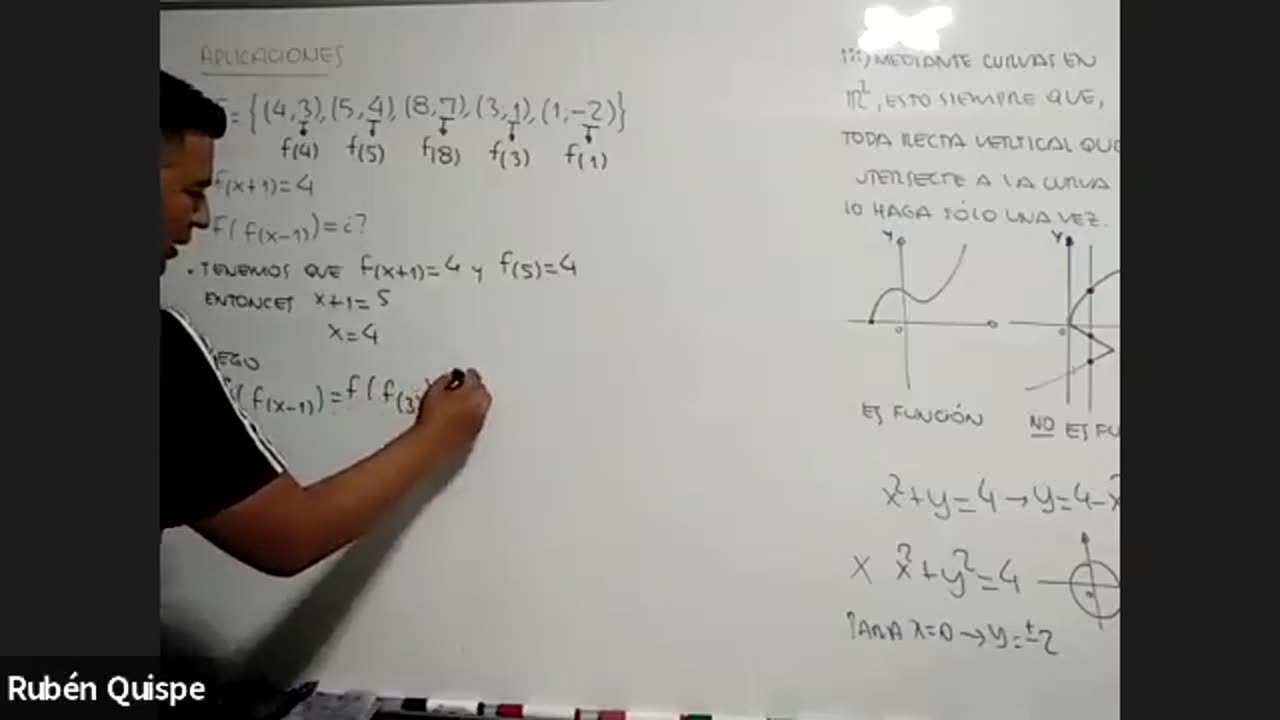 APLICACIONES
= {(4,3),(5,4),(8,7),(3,1),(1,-2)}
f(4) f(5) f(8) f(3) f(1)
f(x+1)=4
f(f(x-1))=¿?
. TENEMOS QUE f(x+1)=4 y f(5)=4
ENTONCES x+1=5
x=4
EGO
f(x-1))=f(f(3)
iii) MEDIANTE CURVAS EN
R², ESTO SIEMPRE QUE,
TODA RECTA VERTICAL QUE
INTERSECTE A LA CURVA
LO HAGA SÓLO UNA VEZ.
Y Y
0 0
ES FUNCIÓN NO ES FU
x²+y=4→y=4-x²
X x²+y²=4
PARA x=0→y=±2
Rubén Quispe